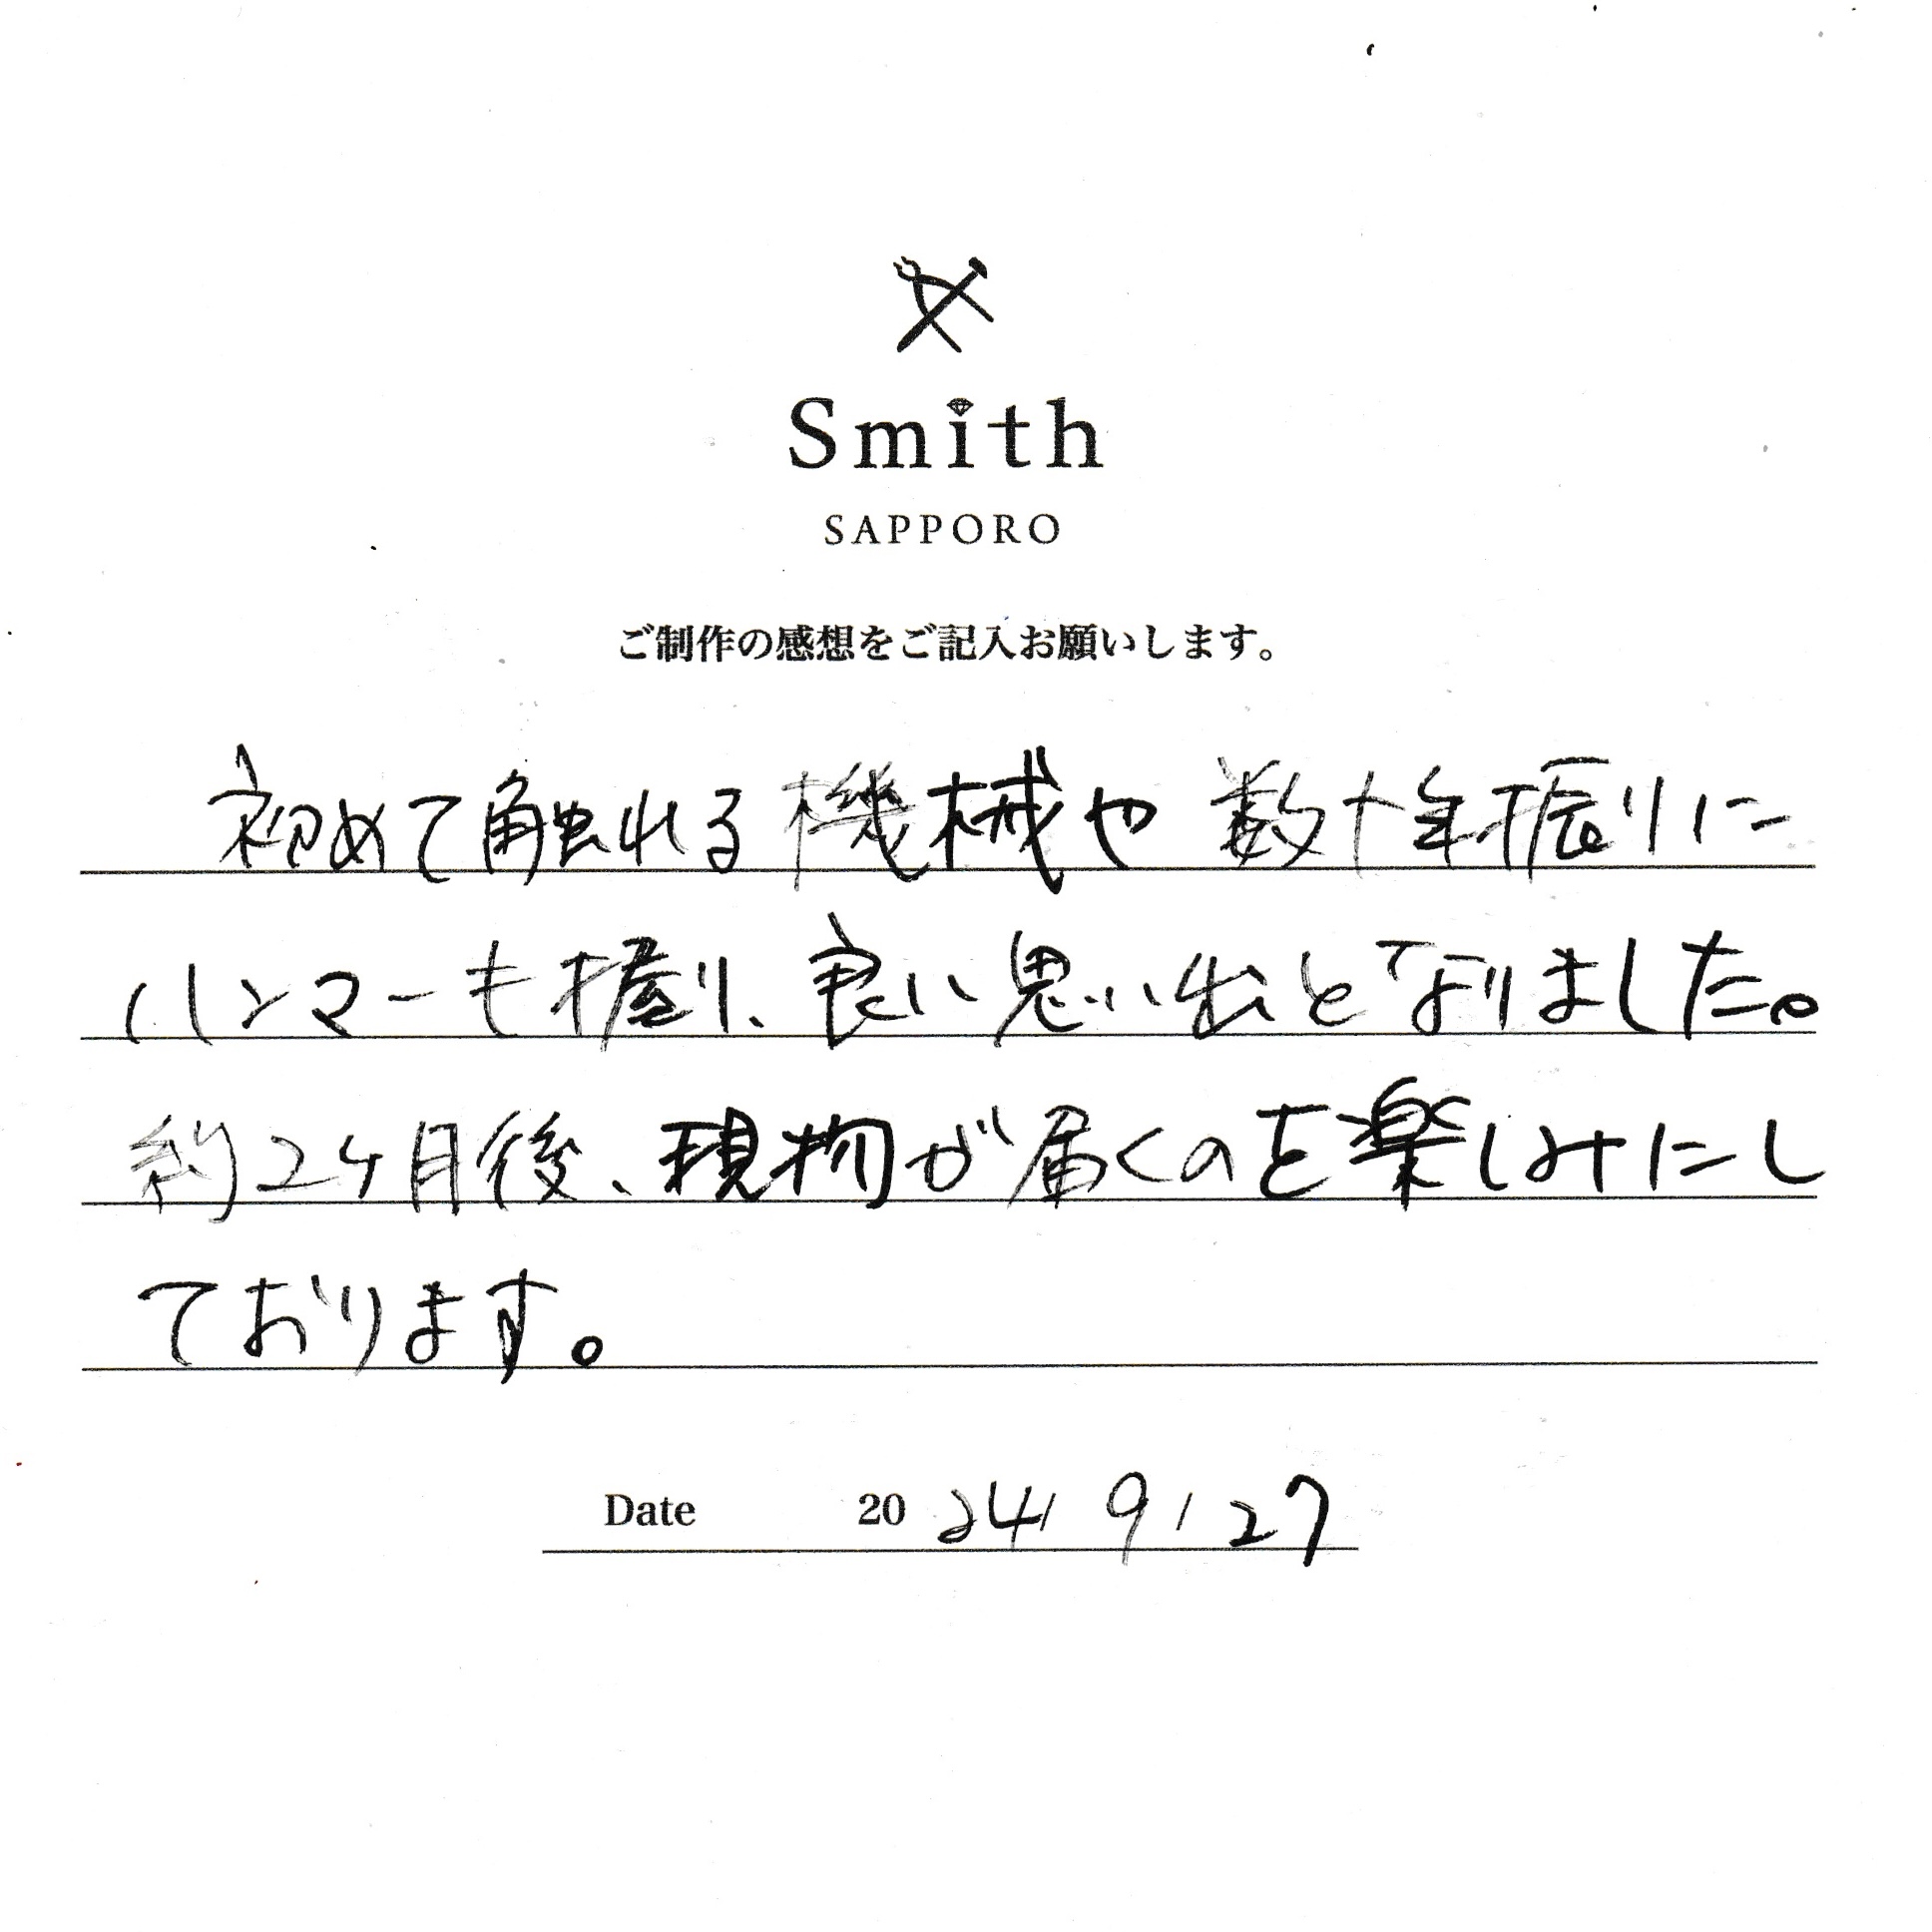 Smith
SAPPORO
ご制作の感想をご記入お願いします。
初めて触れる機械や数十年振りに
ハンマーも握り、良い思い出となりました。
約2ヶ月後、現物が届くのを楽しみにし
ております。
Date 2024/9/27